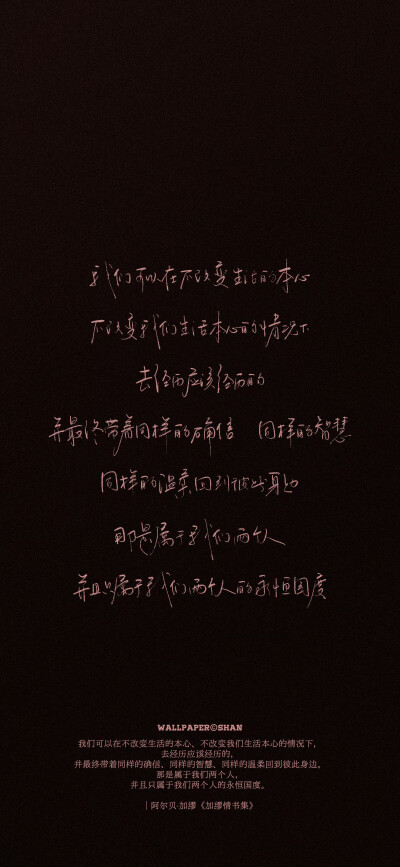 我们可以在不改变生活的本心
不改变我们生活本心的情况下
去经历应该经历的
并最终带着同样的确信 同样的智慧
同样的温柔回到彼此身边
那是属于我们两个人
并且只属于我们两个人的永恒国度
WALLPAPER©SHAN
我们可以在不改变生活的本心、不改变我们生活本心的情况下，
去经历应该经历的，
并最终带着同样的确信，同样的智慧、同样的温柔回到彼此身边，
那是属于我们两个人，
并且只属于我们两个人的永恒国度。
｜阿尔贝·加缪《加缪情书集》